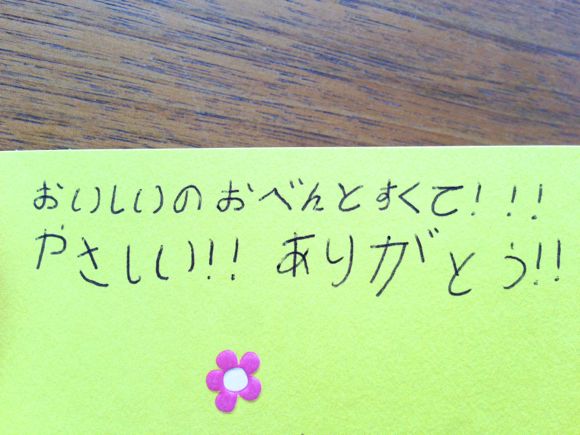 おいしいのおべんとすくて!!!
やさしい!! ありがとう!!